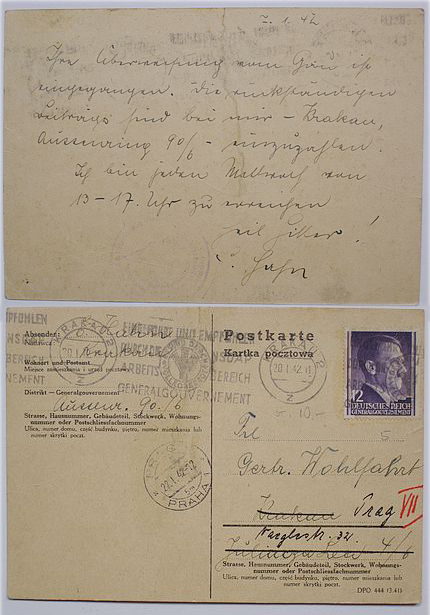 1.42
Ihre Überweisung vom Gau ist
eingegangen. Die rückständigen
Beiträge sind bei mir – Krakau,
Aussenring 90/6 – einzuzahlen.
Ich bin jeden Mittwoch von
13–17. Uhr zu erreichen
Heil Hitler!
Hahn
Absender:
Nadawca:
Krakau
Wohnort und Postamt
Miejsce zamieszkania i urząd pocztowy
Distrikt – Generalgouvernement
Aussenr. 90/6
Strasse, Hausnummer, Gebäudeteil, Stockwerk, Wohnungs-
nummer oder Postschliessfachnummer
Ulica, numer domu, część budynku, piętro, numer mieszkania lub
numer skrytki poczt.
KRAKAU 2
EINGEFÜHRT UND EMPFOHLEN
DURCH DIE NSDAP
ARBEITSBEREICH
GENERALGOUVERNEMENT
KRAKAU 2
20.1.42
Postkarte
Kartka pocztowa
12
DEUTSCHES REICH
GENERALGOUVERNEMENT
PRAHA
22.I.42
Frl
Gertr. Wohlfahrt
Krakau Prag VII
32.
4/6
Strasse, Hausnummer, Gebäudeteil, Stockwerk, Wohnungs-
nummer oder Postschliessfachnummer
Ulica, numer domu, część budynku, piętro, numer mieszkania lub
numer skrytki poczt.
DPO 444 (3.41)